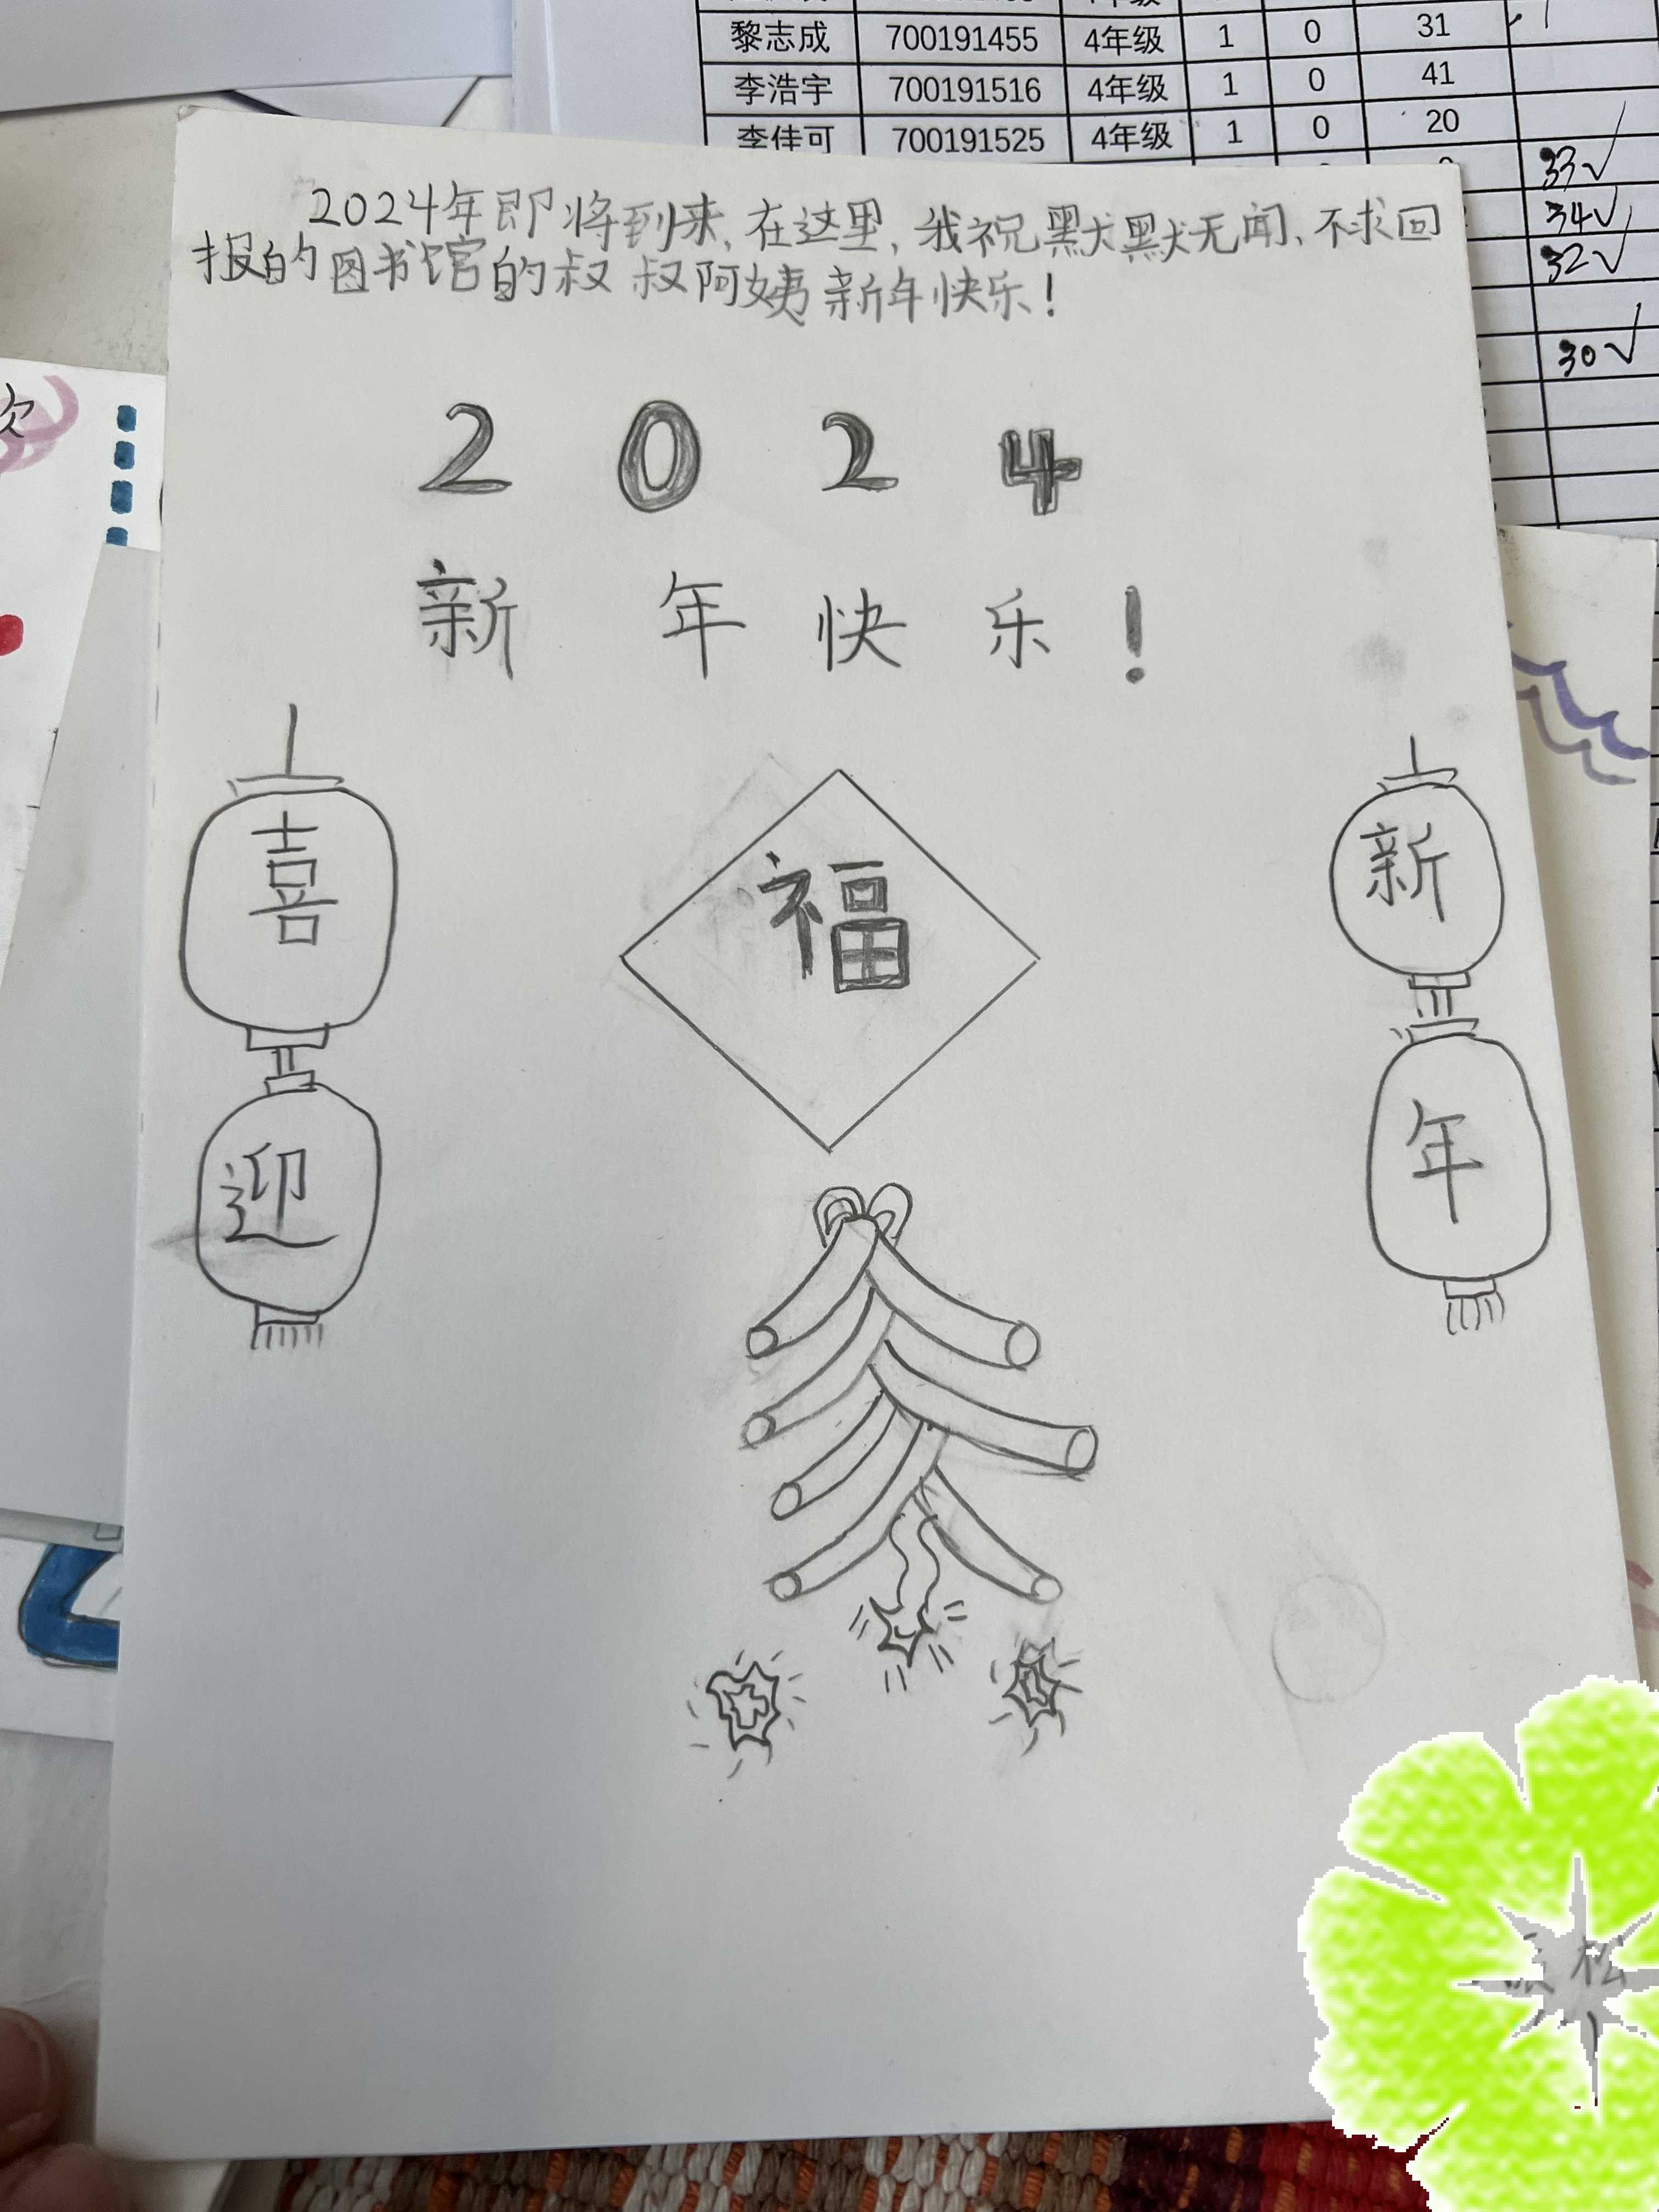 黎志成 700191455 4年级 1 0 31
李浩宇 700191516 4年级 1 0 41
李佳可 700191525 4年级 1 0 20
33√
34√
32√
30√
2024年即将到来,在这里,我祝默默无闻、不求回
报的图书馆的叔叔阿姨新年快乐!
2024
新年快乐!
喜迎
福
新年
松